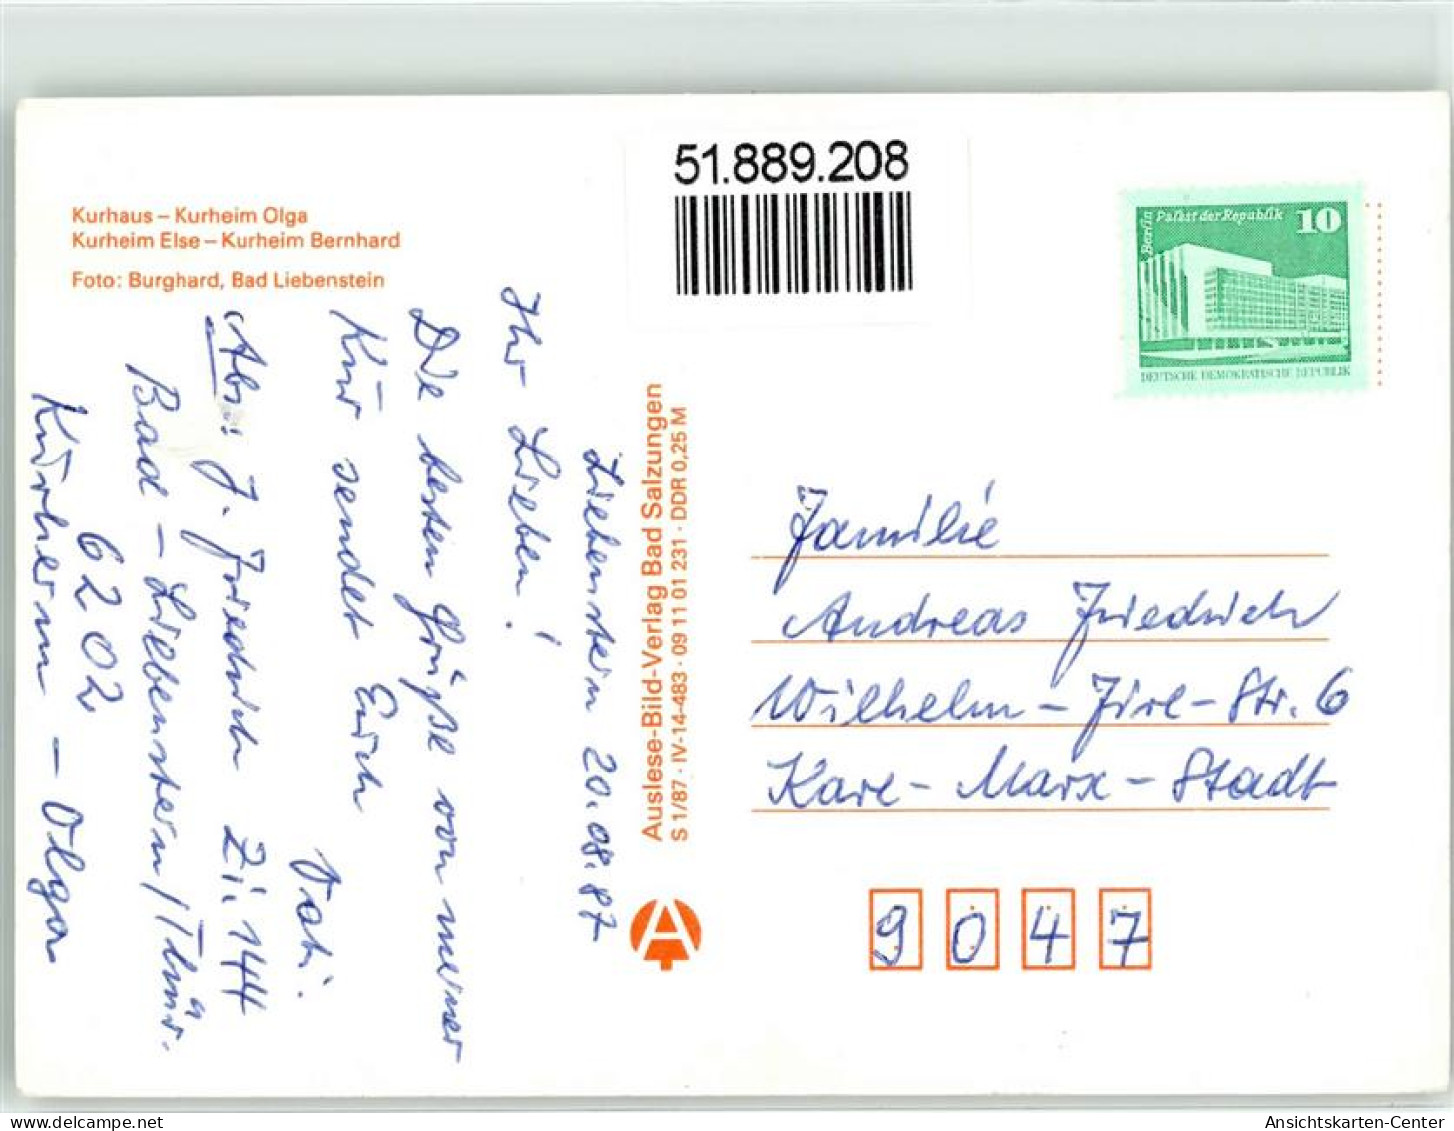 51.889.208
Kurhaus – Kurheim Olga
Kurheim Else – Kurheim Bernhard
Foto: Burghard, Bad Liebenstein
Berlin
Palast der Republik
10
DEUTSCHE DEMOKRATISCHE REPUBLIK
Liebenstein 20.08.87
Ihr Lieben!
Die besten Grüße von meiner
Kur sendet Euch
Vati.
Abs: J. Friedrich Zi. 144
Bad – Liebenstein/Thür.
6202
Kurheim – Olga
Auslese-Bild-Verlag Bad Salzungen
S 1/87 · IV-14-483 · 09 11 01 231 · DDR 0,25 M
A
Familie
Andreas Friedrich
Wilhelm-Firl-Str. 6
Karl-Marx-Stadt
9047
Ansichtskarten-Center